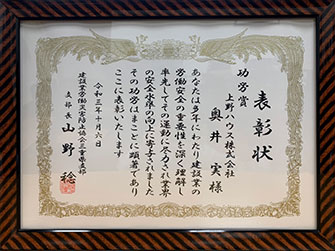 表彰状
功労賞
上野ハウス株式会社
奥井実様
あなたは多年にわたり建設業の
労働安全の重要性を深く理解し
率先してその運動に尽力され業界
の安全水準の向上に寄与されました
その功労はまことに顕著であり
ここに表彰いたします
令和三年十月六日
建設業労働災害防止協会三重県支部
支部長 山野稔